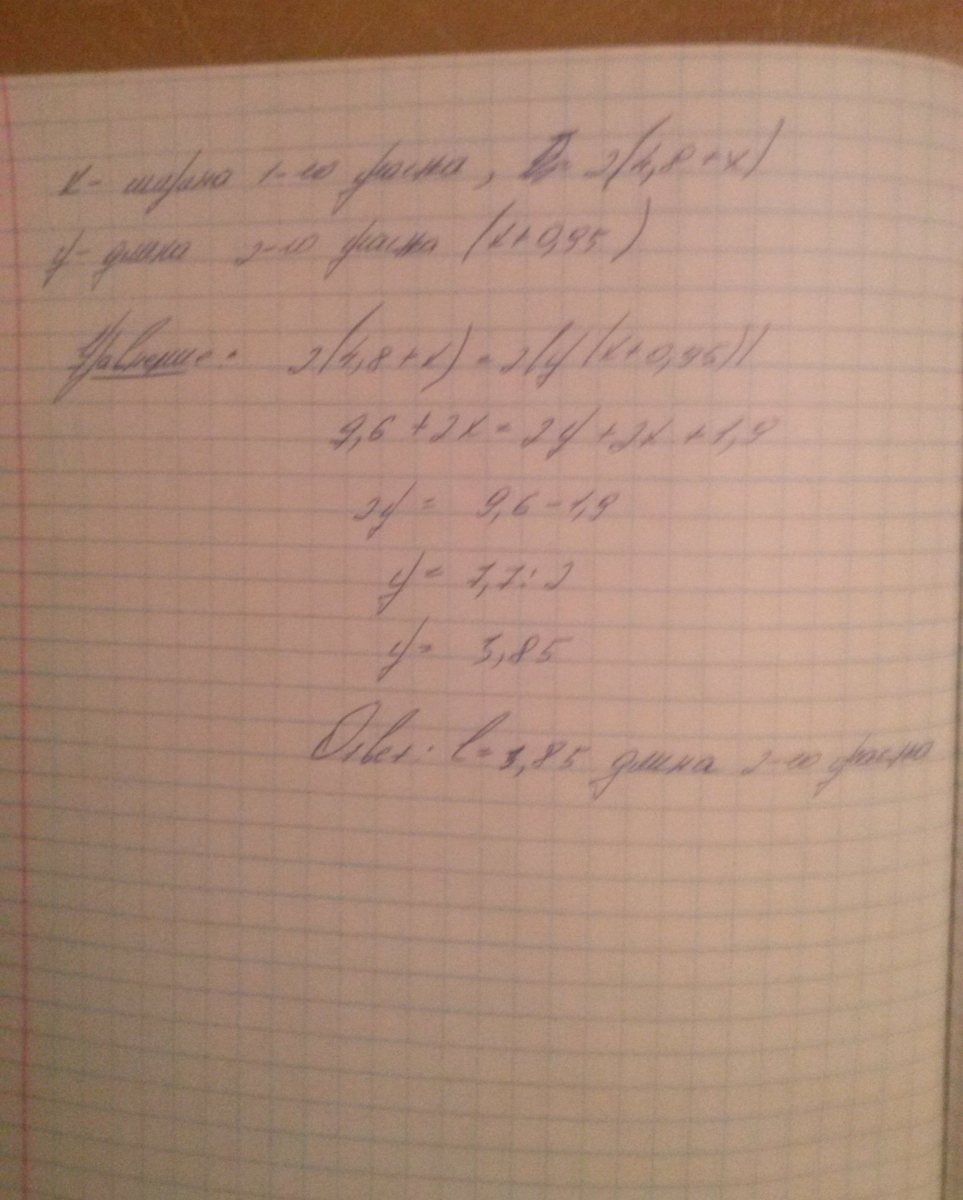 x - ширина 1-го фасна, P= 2(4,8+x)
y - длина 2-го фасна (x+0,95)
Уравнение: 2(4,8+x) = 2(y(x+0,95))
9,6+2x = 2y+2x+1,9
2y = 9,6-1,9
y = 7,7:2
y = 3,85
Ответ: l=3,85 длина 2-го фасна